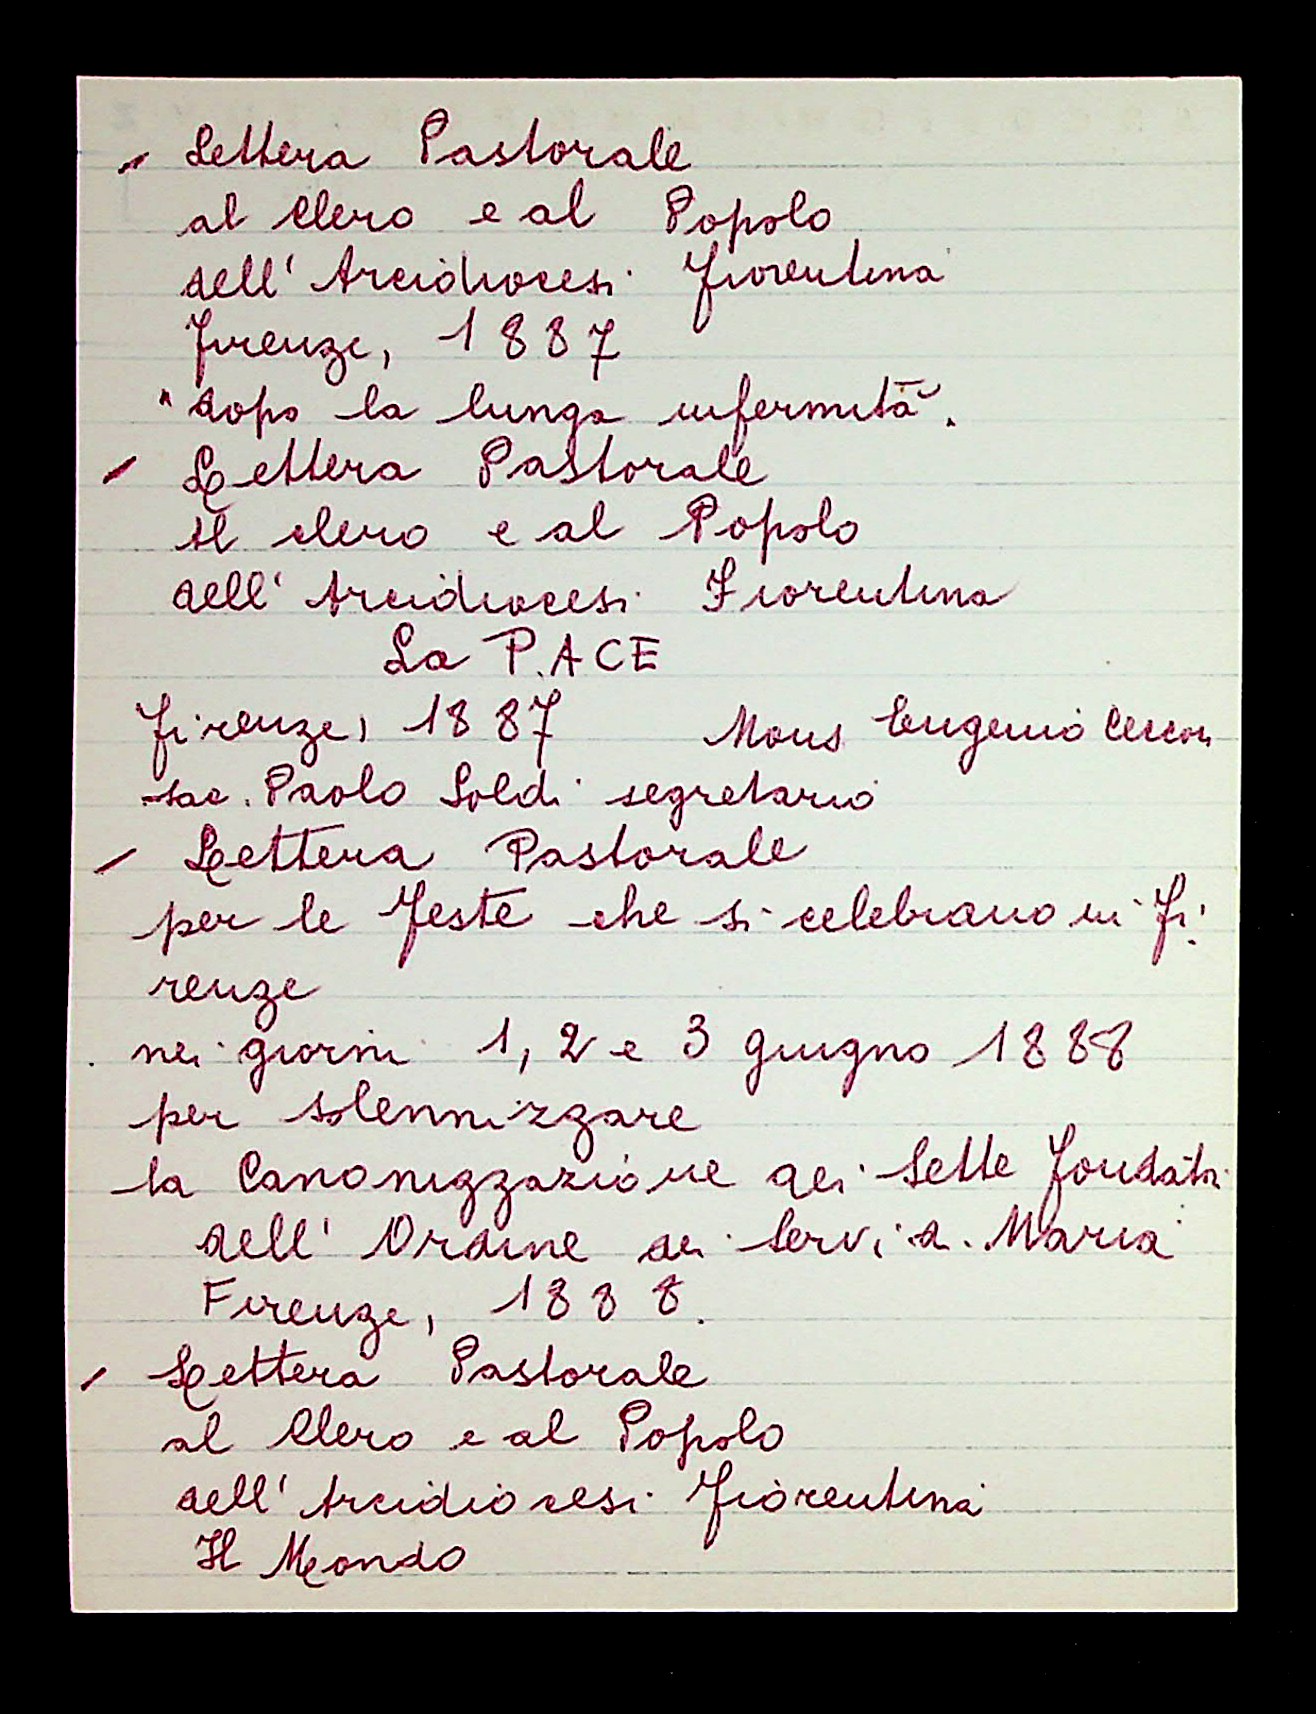 - Lettera Pastorale
al Clero e al Popolo
dell' Arcidiocesi Fiorentina
Firenze, 1887
"dopo la lunga infermità".
- Lettera Pastorale
al clero e al Popolo
dell' Arcidiocesi Fiorentina
La PACE
Firenze, 1887 Mons Eugenio Ceccon
sac. Paolo Soldi segretario
- Lettera Pastorale
per le Feste che si celebrano in Fi
renze
nei giorni 1, 2 e 3 giugno 1888
per solennizzare
la Canonizzazione dei Sette Fondatri
dell' Ordine dei Servi d. Maria
Firenze, 1888.
- Lettera Pastorale
al Clero e al Popolo
dell' Arcidiocesi Fiorentina
Il Mondo